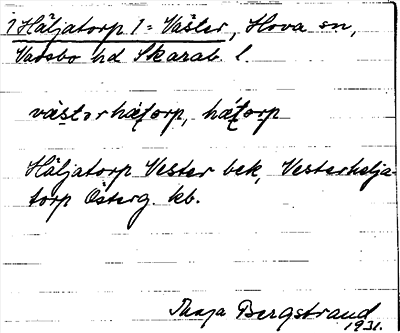 ? Häljatorp 1 = Väster, Hova sn,
Vadsbo hd Skarab. l.
västərhæʈorp, hǽʈorp
Häljatorp Vester bek, Vesterhelja-
torp Österg. kb.
Maja Bergstrand
1931.